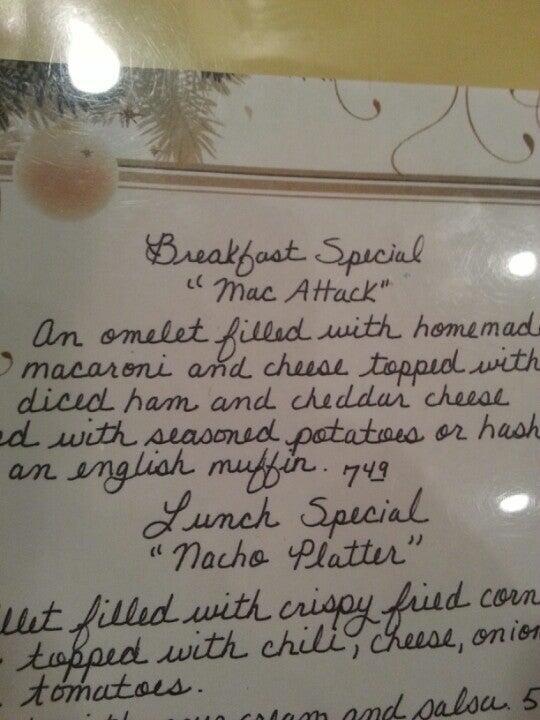 Breakfast Special
"Mac Attack"
An omelet filled with homemad
macaroni and cheese topped with
diced ham and cheddar cheese
ed with seasoned potatoes or hash
an english muffin. 749
Lunch Special
"Nacho Platter"
llet filled with crispy fried corn
topped with chili, cheese, onion
tomatoes.
sour cream and salsa. 5